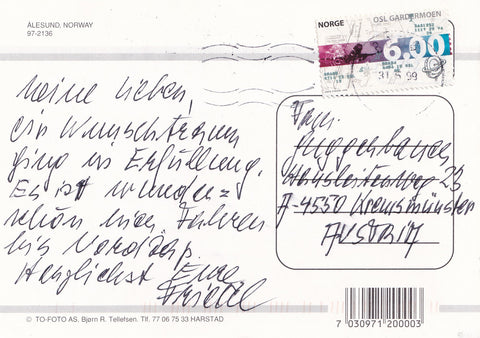 ÅLESUND, NORWAY
97-2136
NORGE
OSL GARDERMOEN
6.00
31. 5. 99
Meine Lieben,
ein Wunschtraum
ging in Erfüllung.
Es ist wunder=
schön hier. Fahren
bis Nordkap.
Herzlichst Eure
Friedl
Fam.
Guggenbauer
Hausleitenweg 23
A-4550 Kremsmünster
AUSTRIA
© TO-FOTO AS. Bjørn R. Tellefsen. Tlf. 77 06 75 33 HARSTAD
7 030971 200003